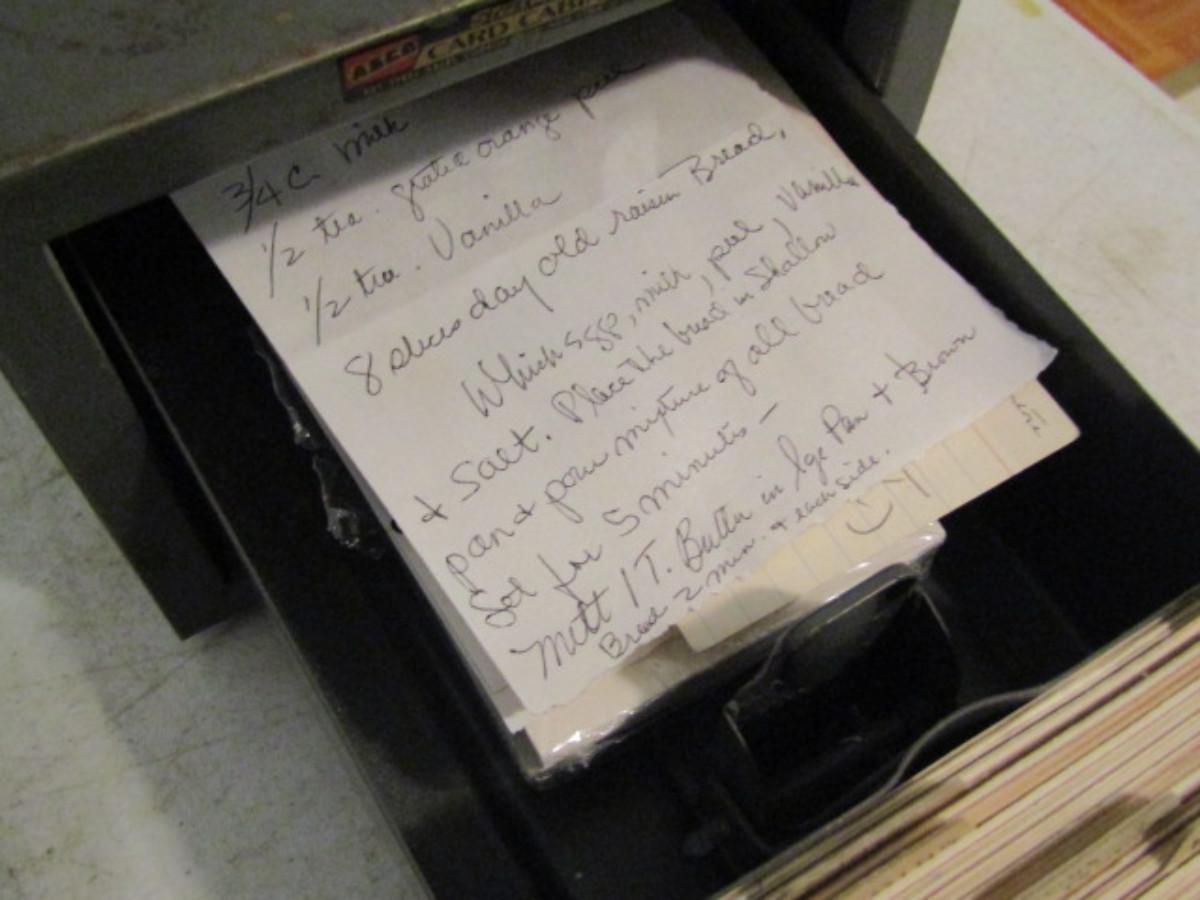 ASCO CARD CABINET
3/4 C milk
1/2 tea. grated orange peel
1/2 tea. Vanilla
8 slices day old raisin Bread,
Whisk eggs, milk, peel, Vanilla
+ Salt. Place the bread in Shallow
pan + pour mixture of all bread
Set for 5 minutes -
Melt 1 T. Butter in lge Pan + Brown
Bread 2 min. + each side.